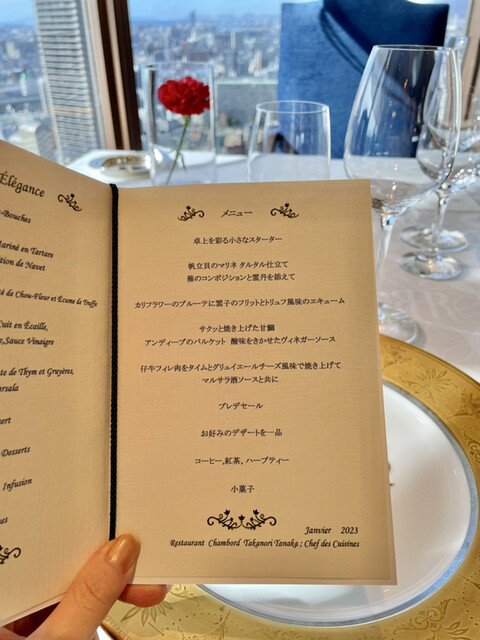 Élégance
-Bouches
Mariné en Tartare
tion de Navet
té de Chou-Fleur et Écume de Truffe
Cuit en Écaille,
,Sauce Vinaigre
te de Thym et Gruyères,
arsala
sert
Desserts
Infusion
メニュー
卓上を彩る小さなスターター
帆立貝のマリネ タルタル仕立て
蕪のコンポジションと雲丹を添えて
カリフラワーのブルーテに雲子のフリットとトリュフ風味のエキューム
サクッと焼き上げた甘鯛
アンディーブのバルケット 酸味をきかせたヴィネガーソース
仔牛フィレ肉をタイムとグリュイエールチーズ風味で焼き上げて
マルサラ酒ソースと共に
プレデセール
お好みのデザートを一品
コーヒー,紅茶, ハーブティー
小菓子
Janvier 2023
Restaurant Chambord Takanori Tanaka ; Chef des Cuisines